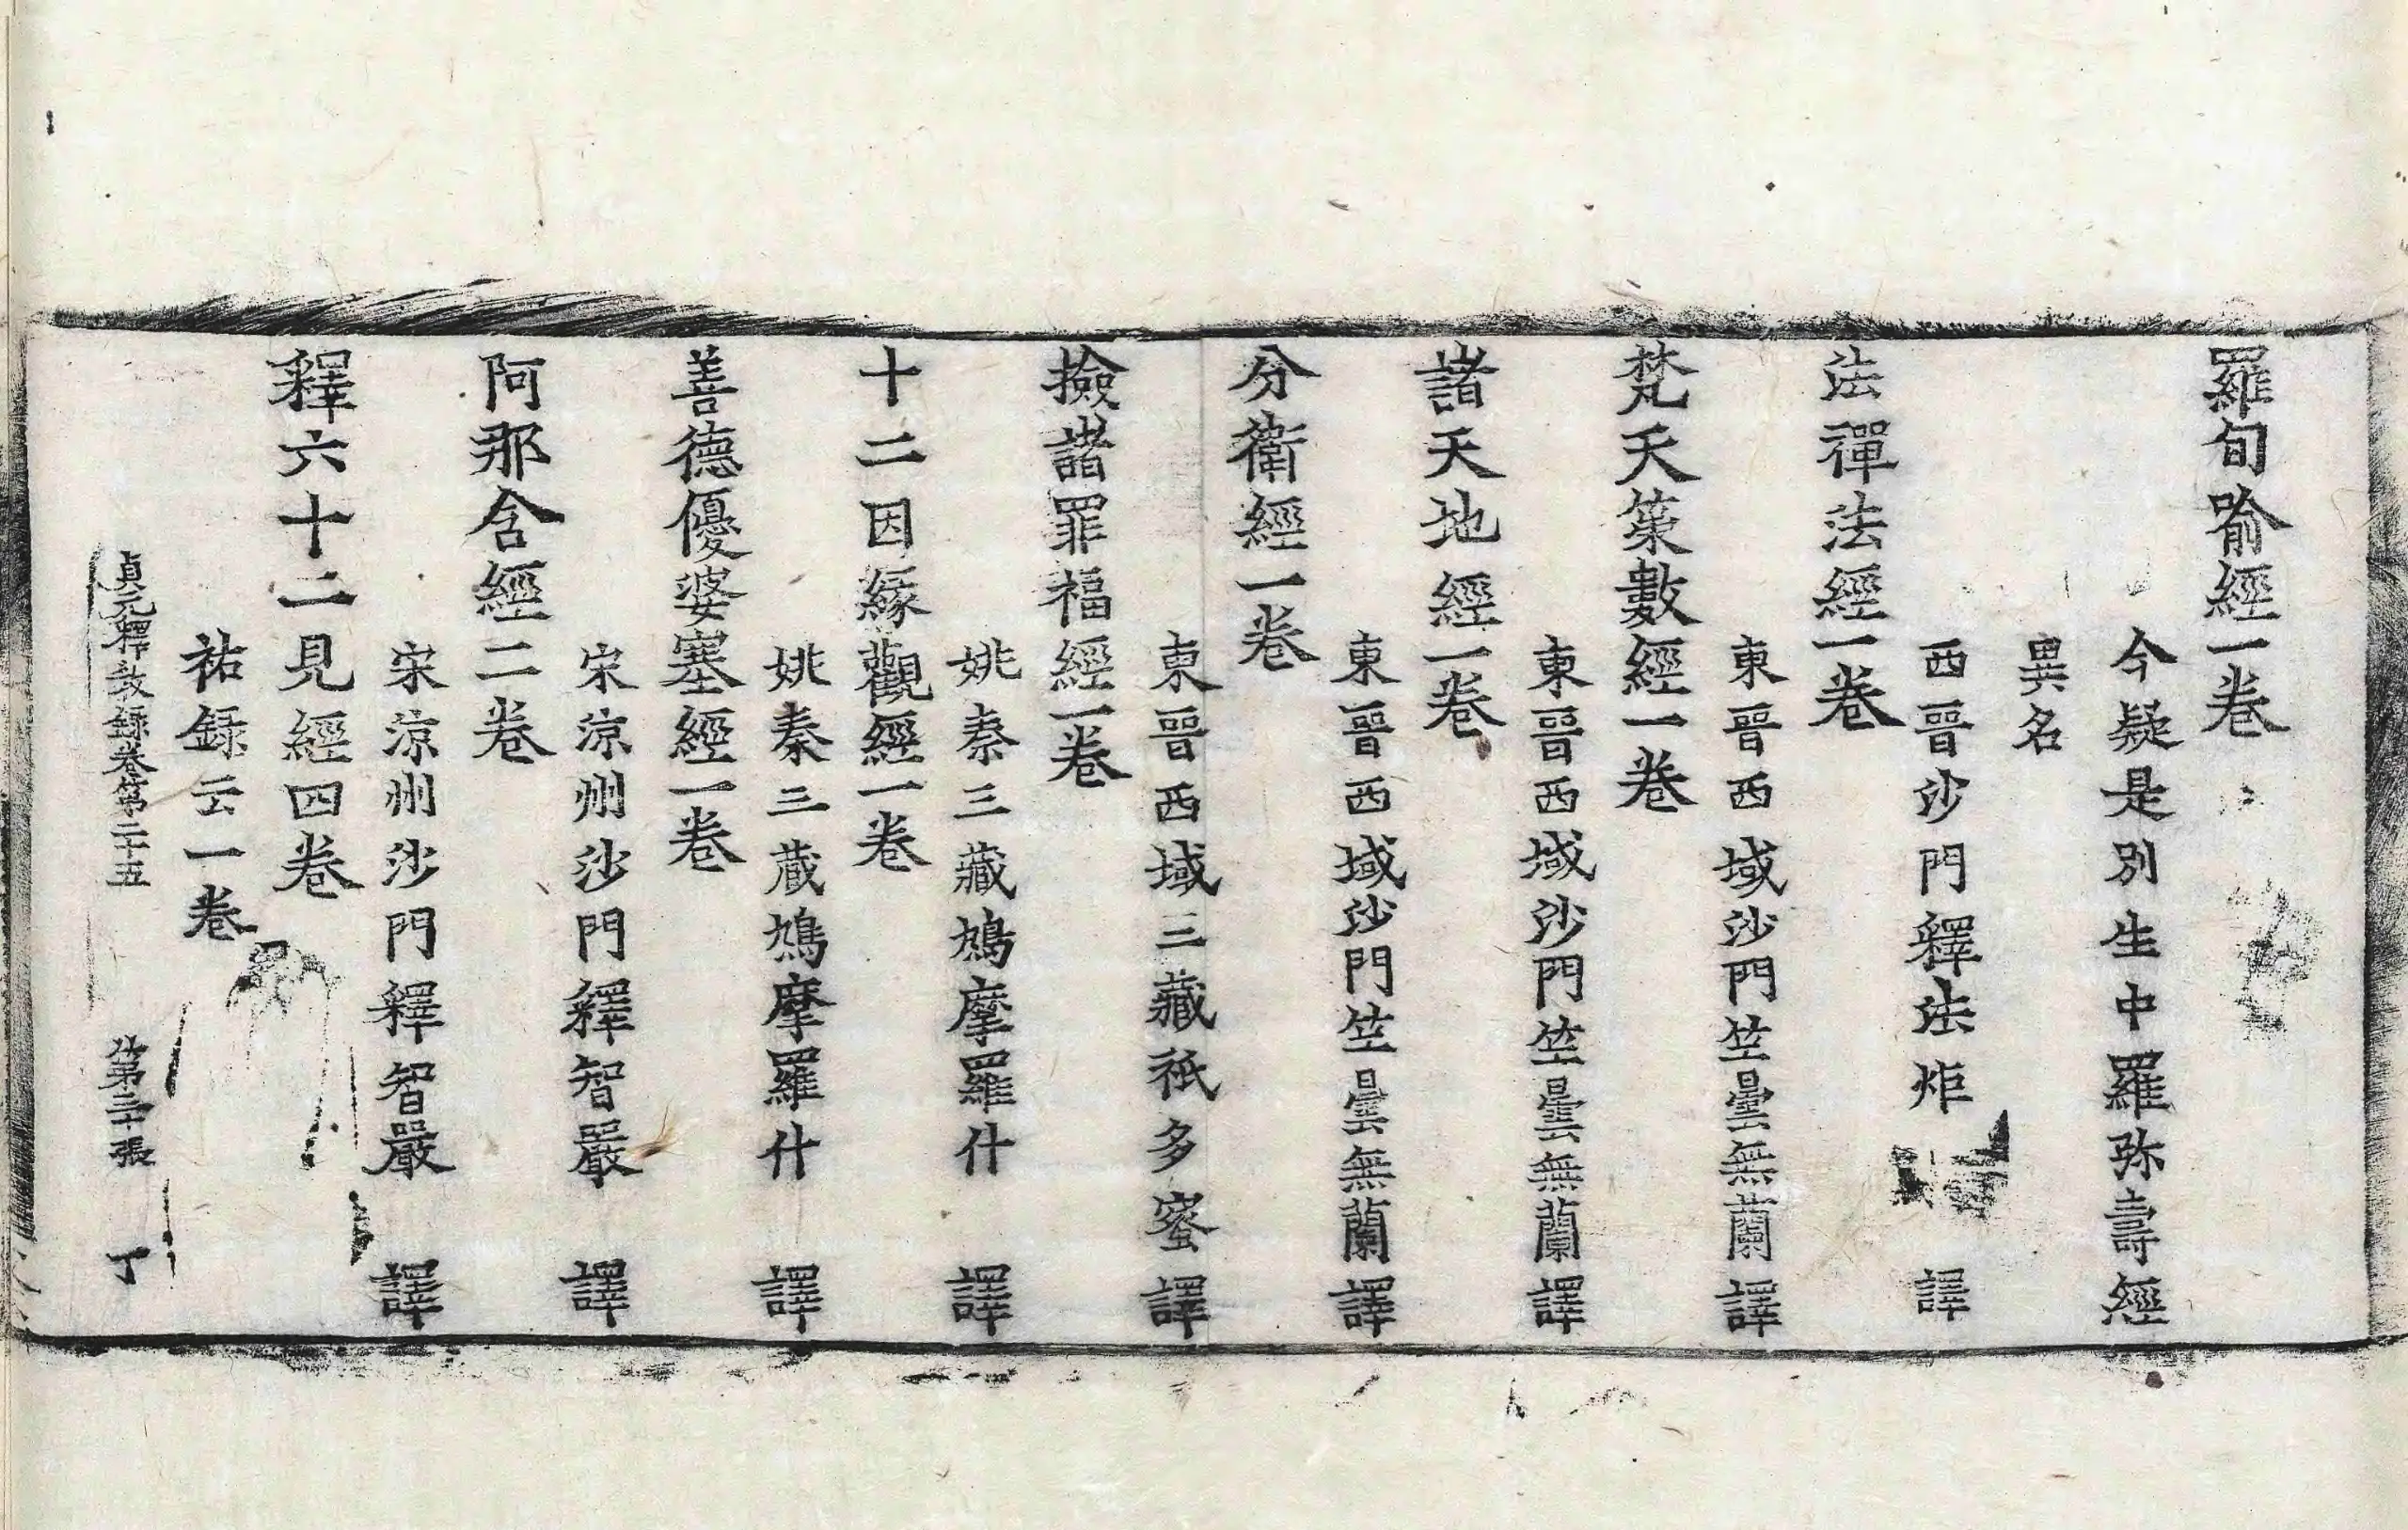 羅旬喻經一卷
今疑是別生中羅弥壽經
異名
西晉沙門釋法炬 譯
法禪法經一卷
東晉西域沙門竺曇無蘭譯
梵天策數經一卷
東晉西域沙門竺曇無蘭譯
諸天地經一卷
東晉西域沙門竺曇無蘭譯
分衛經一卷
東晉西域三藏祇多蜜譯
撿諸罪福經一卷
姚秦三藏鳩摩羅什 譯
十二因緣觀經一卷
姚秦三藏鳩摩羅什 譯
善德優婆塞經一卷
宋涼州沙門釋智嚴 譯
阿那含經二卷
宋涼州沙門釋智嚴 譯
釋六十二見經四卷
祐録云一卷
貞元釋教録卷第二十五 第三十張 丁